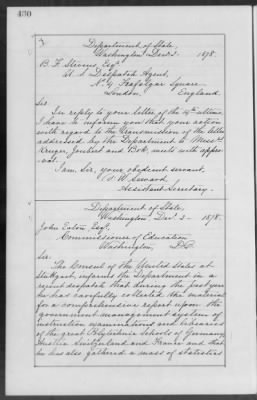 430
Department of State,
Washington Dec. 2. 1878.
B. F. Stevens, Esq.
U. S. Despatch Agent,
No. 4 Trafalgar Square
London,
England.
Sir
In reply to your letter of the 14th ultimo,
I have to inform you that your action
with regard to the transmission of the letter
addressed by the Department to Messrs.
Kruger, Joubert and Bok, meets with appro-
val.
I am, Sir, your obedient servant,
F. W. Seward,
Assistant Secretary.
Department of State,
Washington Dec. 2 - 1878.
John Eaton Esq.,
Commissioner of Education
Washington, D.C.
Sir.
The Consul of the United States at
Stuttgart, informs the Department in a
recent despatch that during the past year
he has carefully collected the material
for a comprehensive report upon the
government management system of
instruction examinations and libraries
of the great Polytechnic Schools of Germany
Austria Switzerland and France and that
he has also gathered a mass of statistics